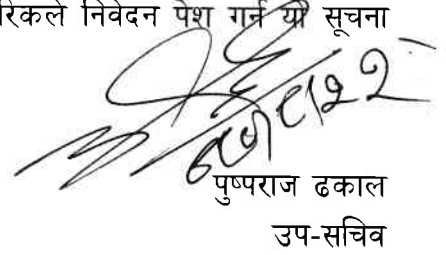 रिकले निवेदन पेश गर्न यो सूचना
पुष्पराज ढकाल
उप-सचिव